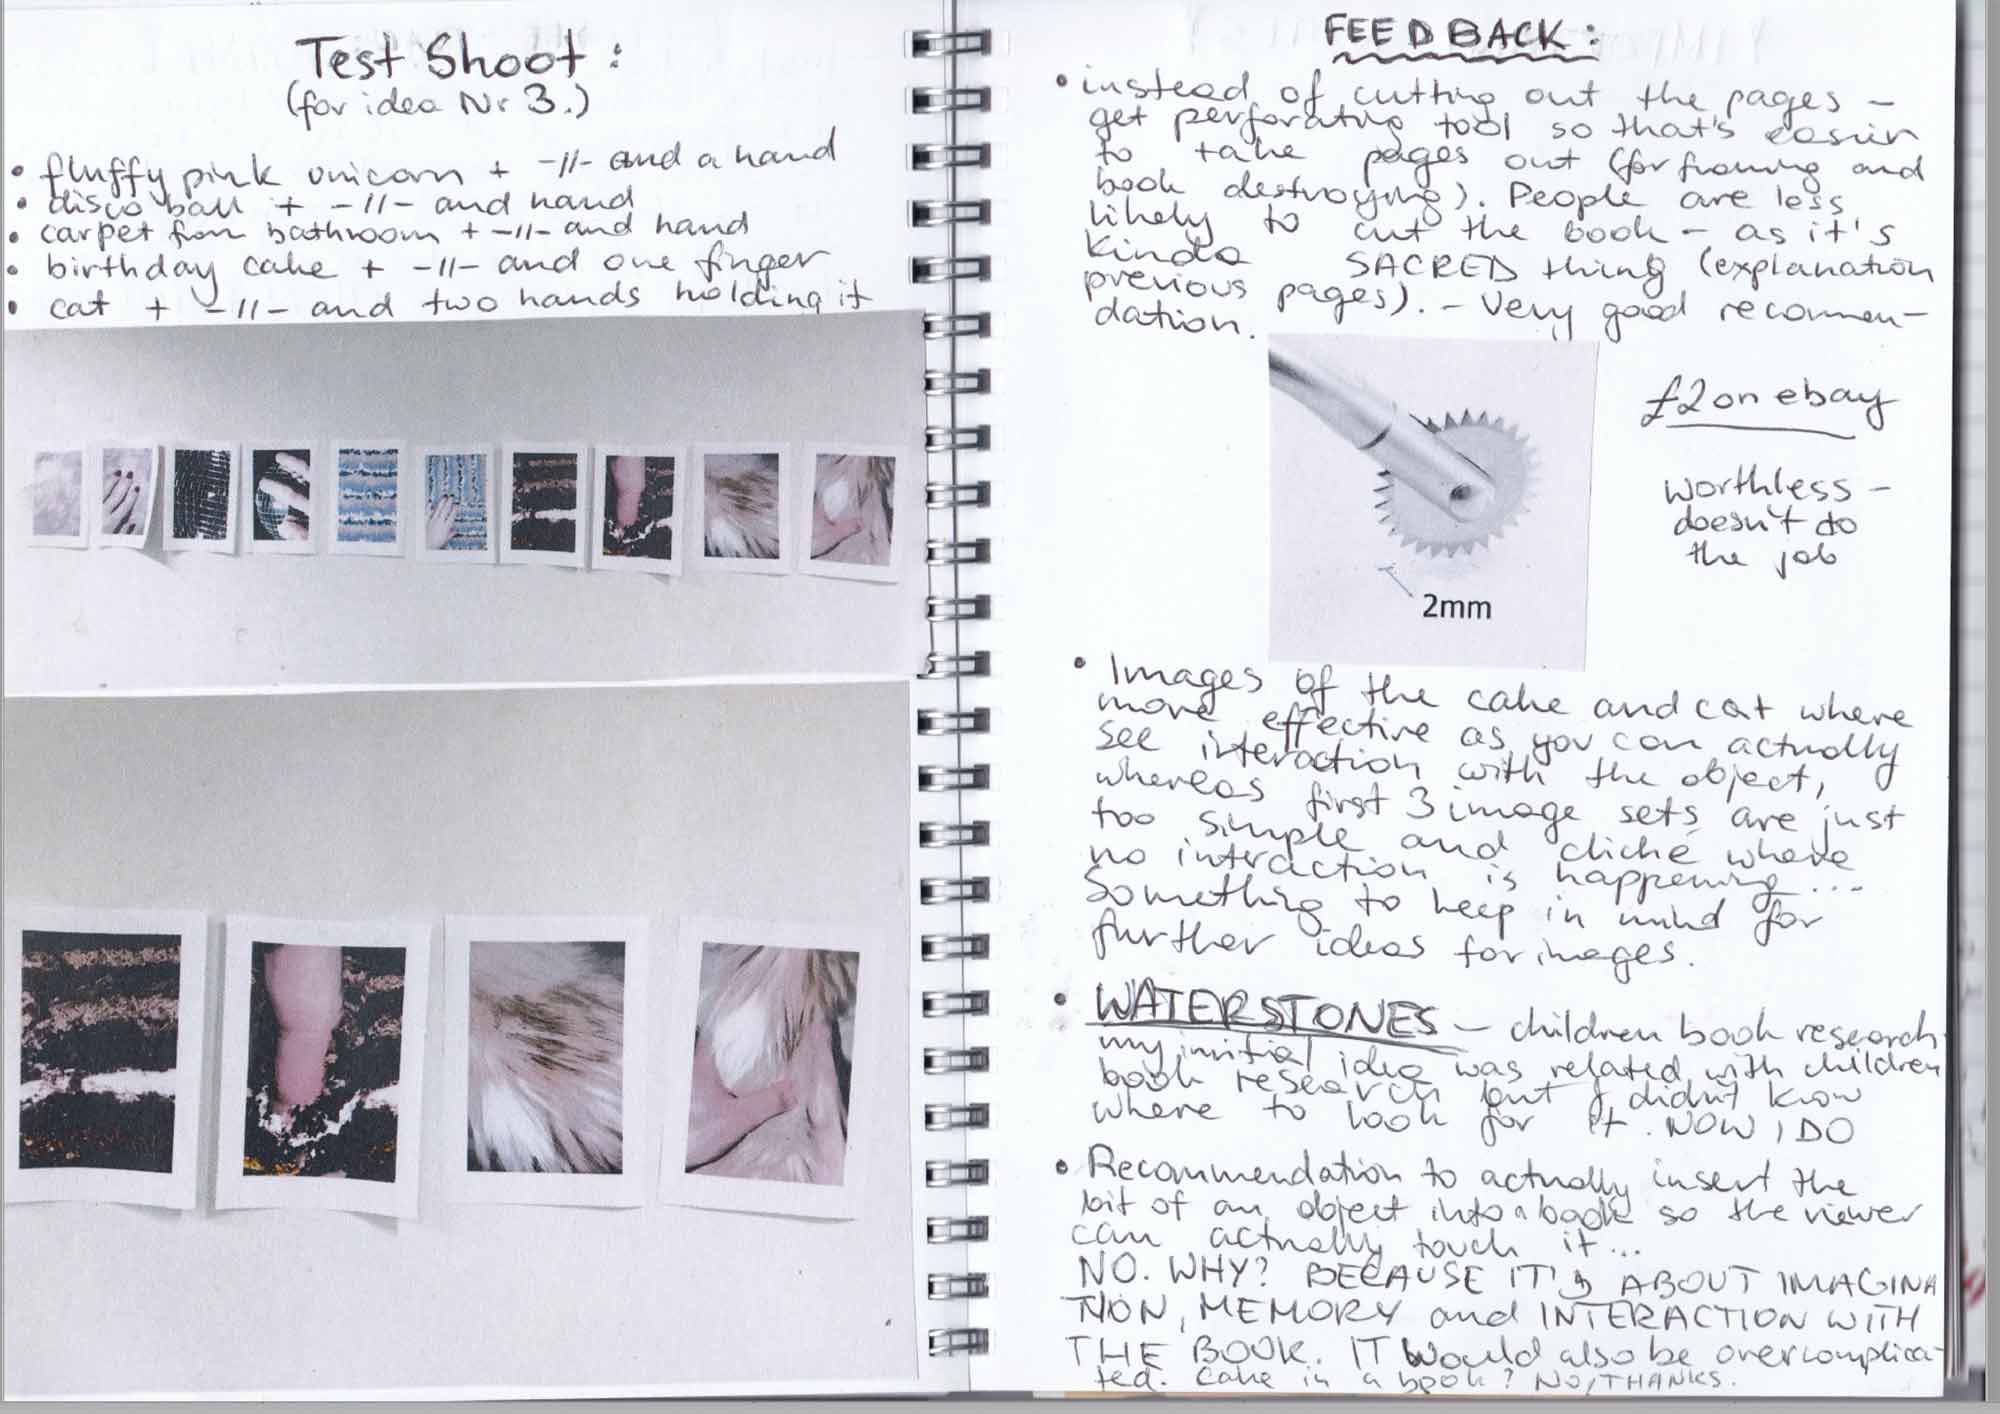 Test Shoot :
(for idea Nr 3.)
• fluffy pink unicorn + -||- and a hand
• disco ball + -||- and hand
• carpet from bathroom + -||- and hand
• birthday cake + -||- and one finger
• cat + -||- and two hands holding it
FEEDBACK:
• instead of cutting out the pages –
get perforating tool so that's easier
to take pages out (for framing and
book destroying). People are less
likely to cut the book – as it's
kinda SACRED thing (explanation
previous pages). – Very good recommen-
dation.
£2 on ebay
worthless –
doesn't do
the job
2mm
• Images of the cake and cat where
more effective as you can actually
see interaction with the object,
whereas first 3 image sets are just
too simple and cliché where
no interaction is happening...
Something to keep in mind for
further ideas for images.
• WATERSTONES – children book research
my initial idea was related with children
book research but I didn't know
where to look for it. NOW I DO
• Recommendation to actually insert the
bit of an object into a book so the viewer
can actually touch it...
NO. WHY? BECAUSE IT'S ABOUT IMAGINA
TION, MEMORY and INTERACTION WITH
THE BOOK. IT Would also be overcomplica-
ted. Cake in a book? NO, THANKS.